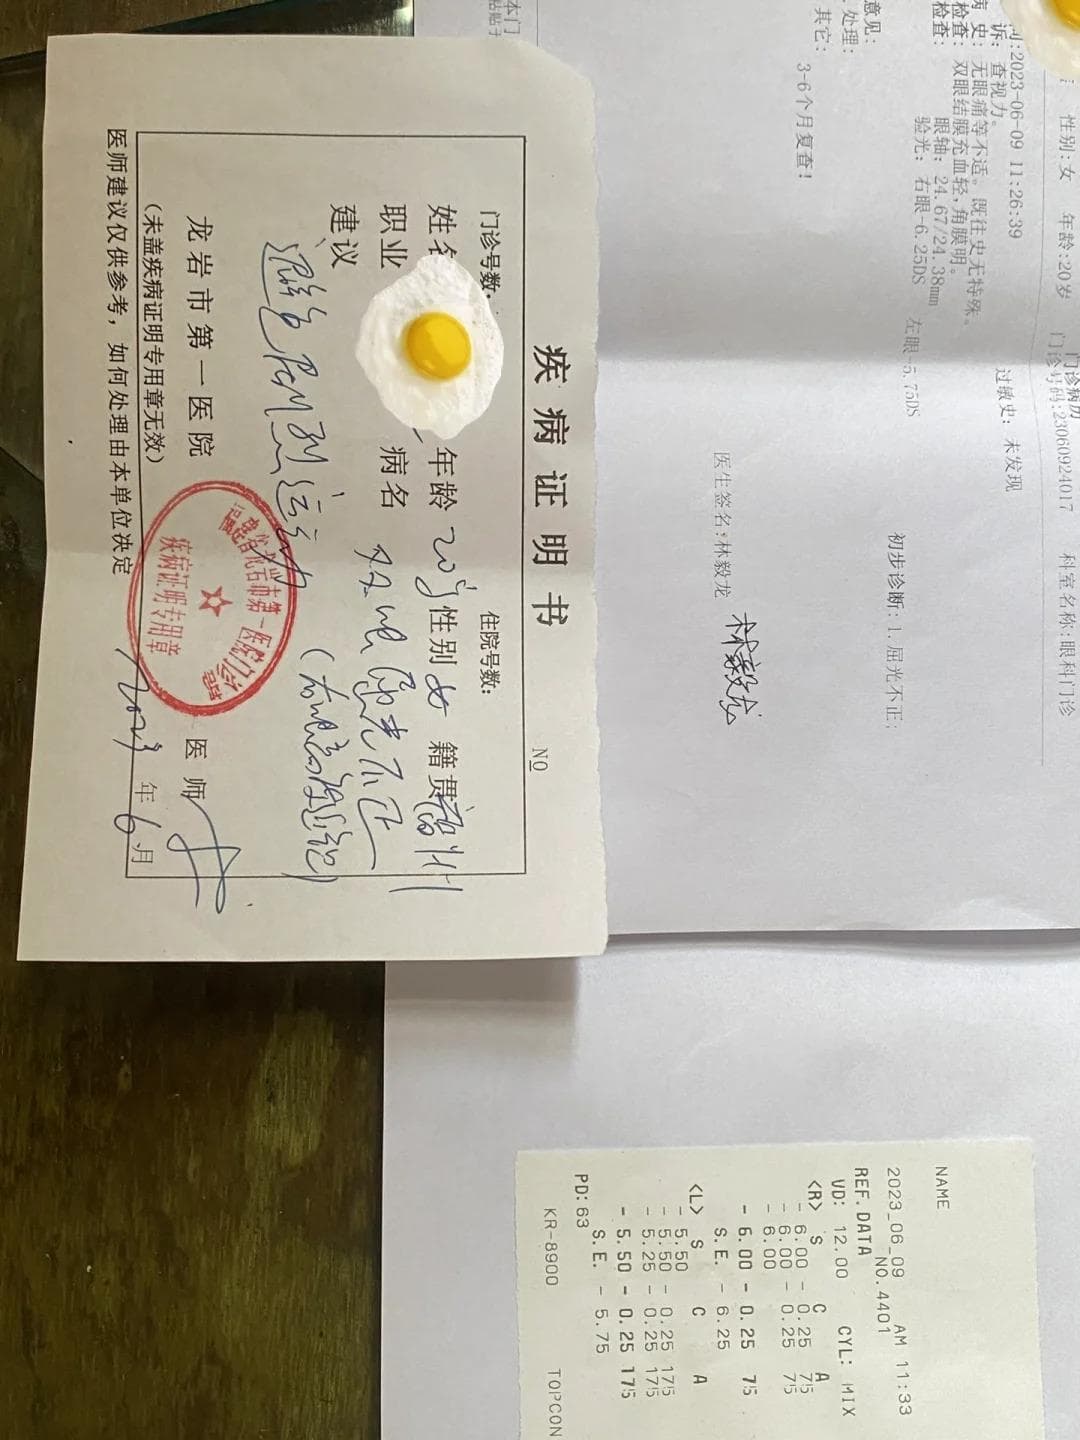 疾病证明书
N0
门诊号数:
住院号数:
年龄 20岁 性别 女 籍贯
职业
病名 双眼屈光不正
(右眼高度近视)
建议
避免剧烈运动
龙岩市第一医院
医师
疾病证明专用章
2023年6月
(未盖疾病证明专用章无效)
医师建议仅供参考，如何处理由本单位决定
门诊病历
性别:女 年龄:20岁 门诊号码:23060924017 科室名称:眼科门诊
:2023-06-09 11:26:39 过敏史: 未发现
诉: 查视力。
史: 无眼痛等不适。既往史无特殊。
检查: 双眼结膜充血轻,角膜明。
检查: 眼轴: 24.67/24.38mm
验光: 右眼-6.25DS 左眼-5.75DS
初步诊断:1.屈光不正;
意见:
处理:
其它:
3-6个月复查!
医生签名:林毅龙 林毅龙
本门
粘贴于
NAME
2023_06_09 AM 11:33
NO.4401
REF.DATA
VD: 12.00 CYL: MIX
<R> S C A
- 6.00 - 0.25 75
- 6.00 - 0.25 75
- 6.00
- 6.00 - 0.25 75
S.E. - 6.25
<L> S C A
- 5.50
- 5.50 - 0.25 175
- 5.25 - 0.25 175
- 5.50 - 0.25 175
S.E. - 5.75
PD:63
KR-8900 TOPCON